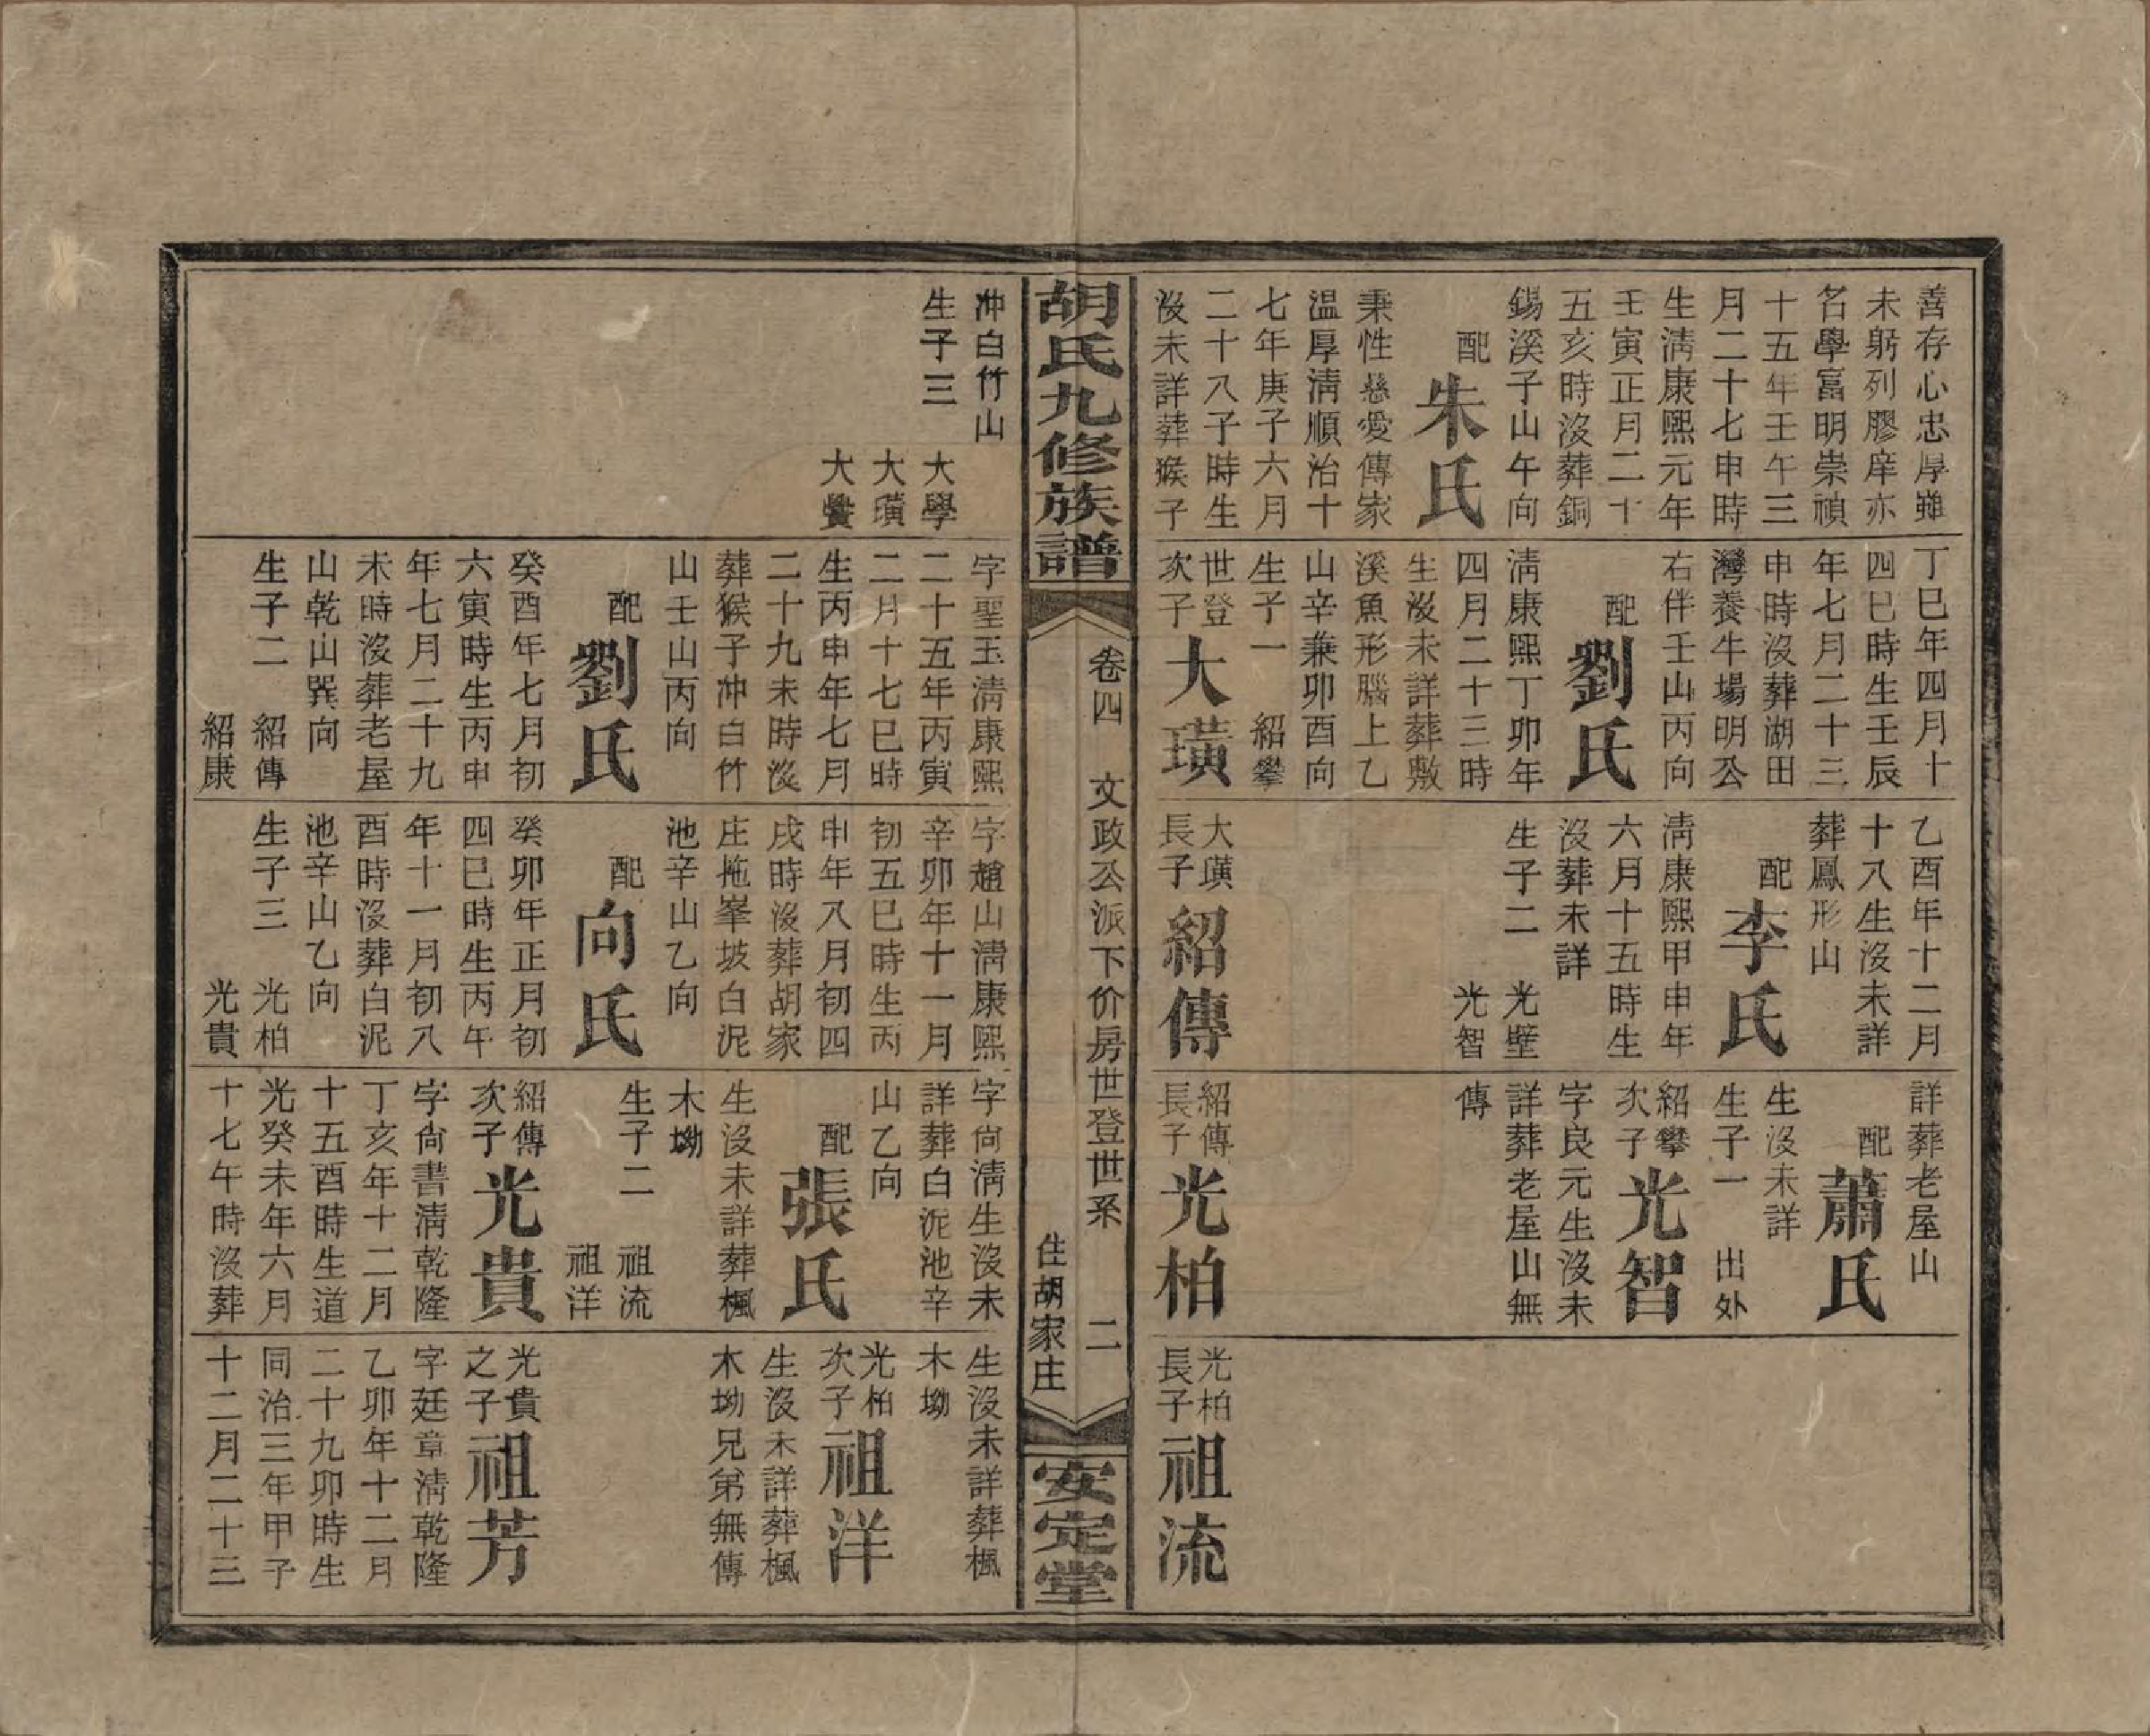 善存心忠厚雖
未躬列膠庠亦
名學富明崇禎
十五年壬午三
月二十七申時
生淸康熙元年
壬寅正月二十
五亥時沒葬銅
錫溪子山午向
配朱氏
秉性慈愛傳家
温厚淸順治十
七年庚子六月
二十八子時生
沒未詳葬猴子
丁巳年四月十
四巳時生壬辰
年七月二十三
申時沒葬湖田
灣養牛場明公
右伴壬山丙向
配劉氏
淸康熙丁卯年
四月二十三時
生沒未詳葬敷
溪魚形腦上乙
山辛兼卯酉向
生子一 紹攀
世登
次子
大璜
乙酉年十二月
十八生沒未詳
葬鳳形山
配李氏
淸康熙甲申年
六月十五時生
沒葬未詳
生子二 光壁
光智
大璜
長子
紹傳
詳葬老屋山
配蕭氏
生沒未詳
生子一 出外
紹攀
次子
光智
字良元生沒未
詳葬老屋山無
傳
紹傳
長子
光柏
光柏
長子
祖流
胡氏九修族譜
卷四 文政公派下价房世登世系 二
住胡家庄
安定堂
冲白竹山
生子三 大學
大璜
大黌
字聖玉淸康熙
二十五年丙寅
二月十七巳時
生丙申年七月
二十九未時沒
葬猴子冲白竹
山壬山丙向
配劉氏
癸酉年七月初
六寅時生丙申
年七月二十九
未時沒葬老屋
山乾山巽向
生子二 紹傳
紹康
字趙山淸康熙
辛卯年十一月
初五巳時生丙
申年八月初四
戌時沒葬胡家
庄拖峯坡白泥
池辛山乙向
配向氏
癸卯年正月初
四巳時生丙午
年十一月初八
酉時沒葬白泥
池辛山乙向
生子三 光柏
光貴
字尙淸生沒未
詳葬白泥池辛
山乙向
配張氏
生沒未詳葬楓
木坳
生子二 祖流
祖洋
紹傳
次子
光貴
字尙書淸乾隆
丁亥年十二月
十五酉時生道
光癸未年六月
十七午時沒葬
生沒未詳葬楓
木坳
光柏
次子
祖洋
生沒未詳葬楓
木坳兄弟無傳
光貴
之子
祖芳
字廷章淸乾隆
乙卯年十二月
二十九卯時生
同治三年甲子
十二月二十三